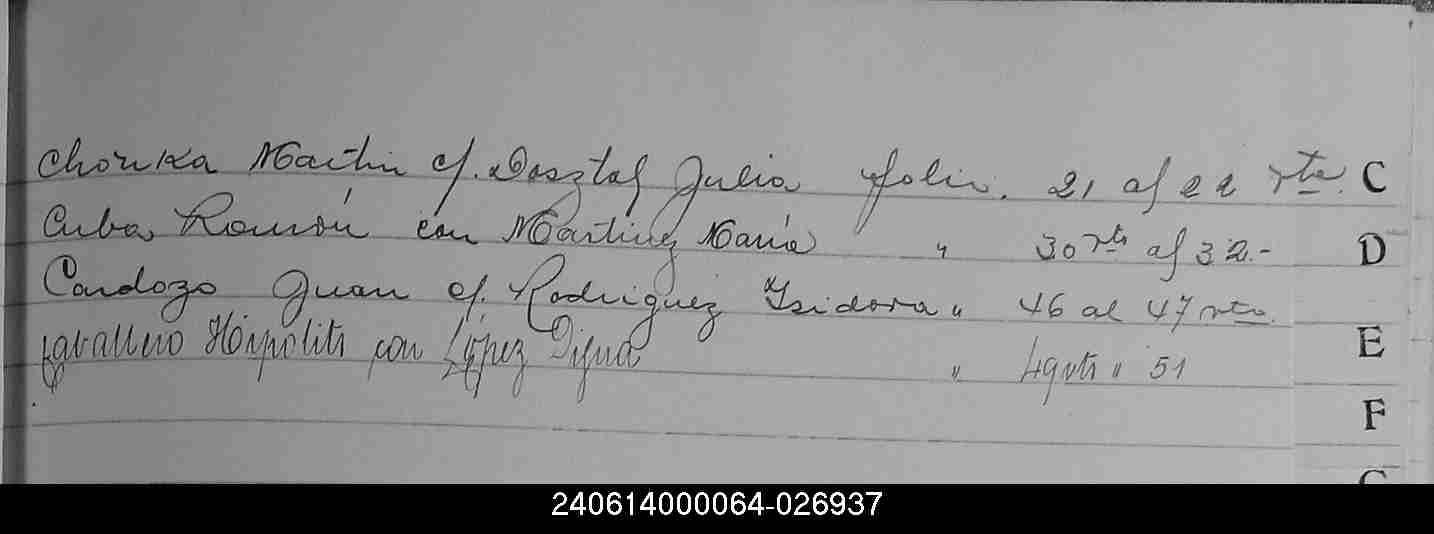 Chonka Martin c/. Dosztal Julia folio. 21 al 22 vto. C
Cuba Ramón con Martinez María " 30 vto al 32.- D
Cardozo Juan c/. Rodriguez Isidora " 46 al 47 vto.
Cavallero Hipólito con López Digna " 49 vto " 51
E
F
240614000064-026937